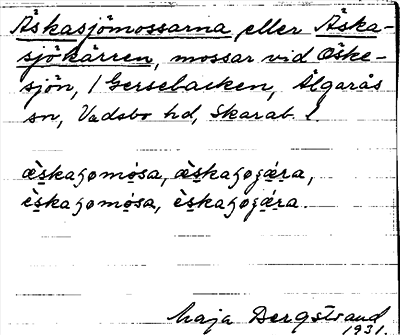 Äskasjömossarna, eller Äska-
sjökärren, mossar vid Öske-
sjön, / Gersebacken, Älgarås
sn, Vadsbo hd, Skarab. l
æ̀skaʂomósa, æ̀skaʂoʒǽra,
ὲskaʂomósa, ὲskaʂoʒǽra.
Maja Bergstrand
1931.